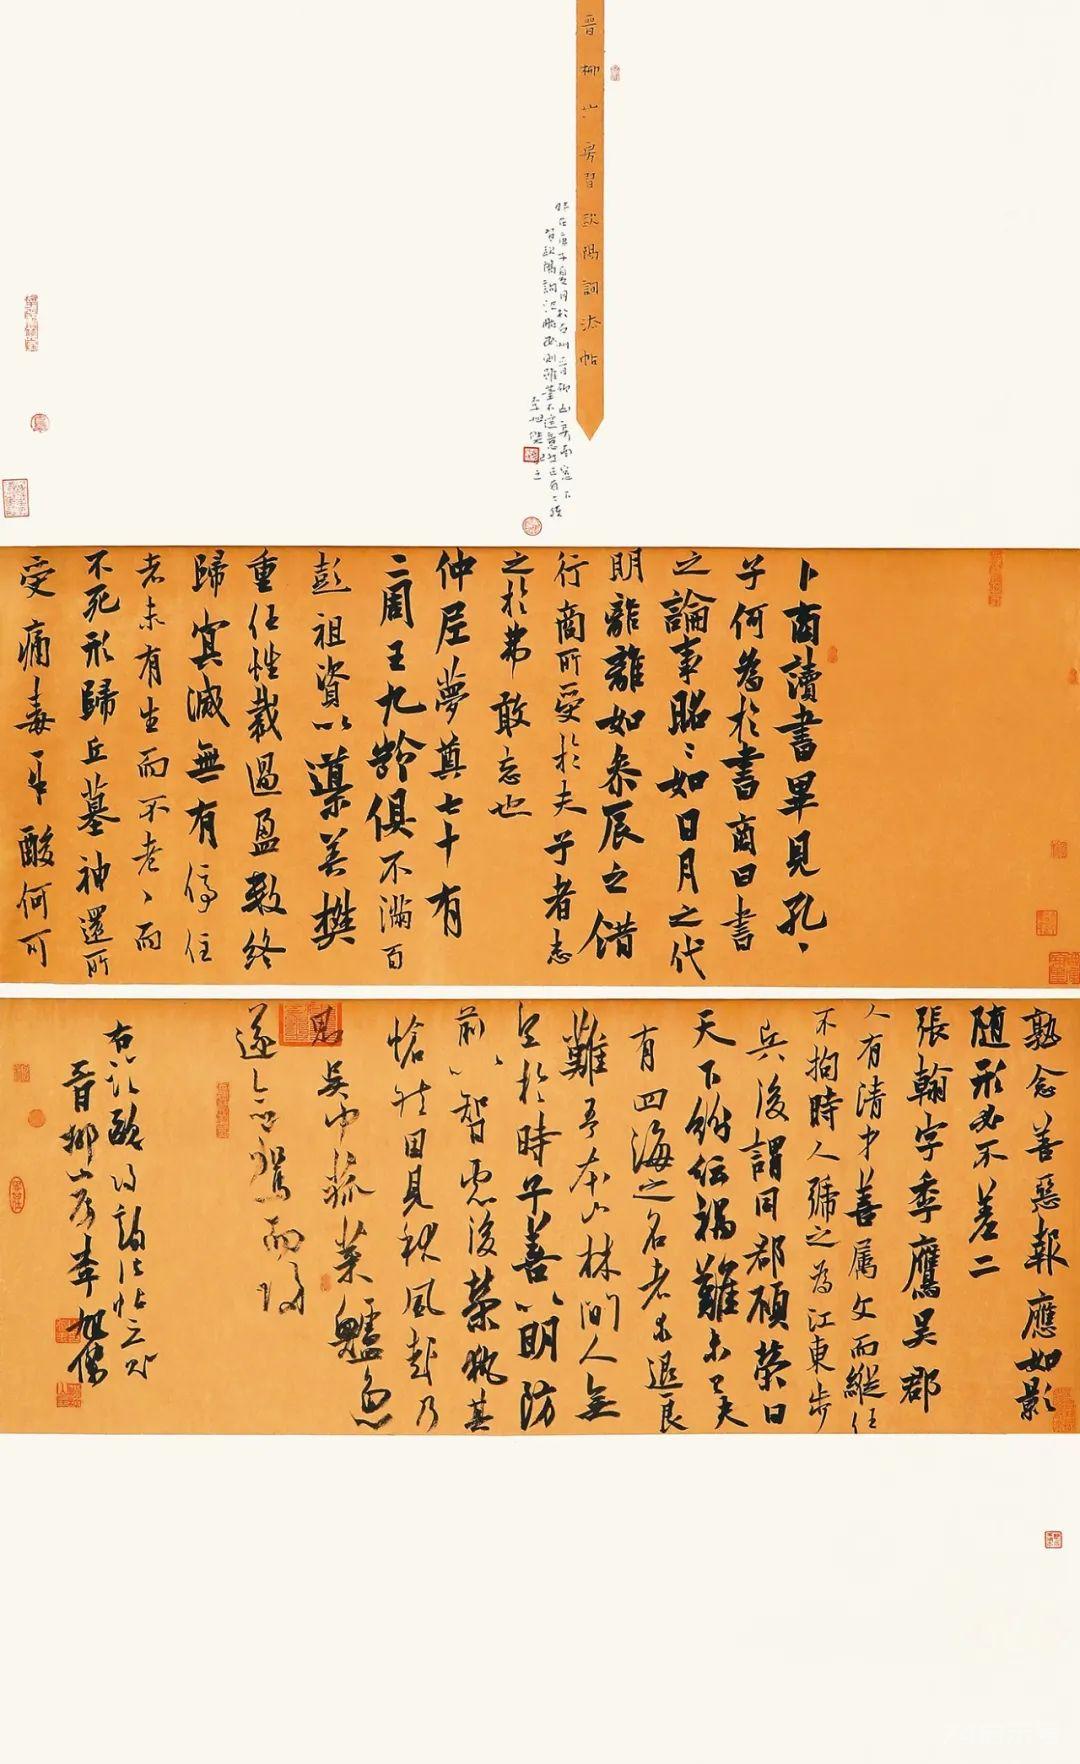 晋柳山房習歐陽詢法帖
卜商讀書畢見孔丶
子何為於書商曰書
之論事昭丶如日月之代
明離離如參辰之錯
行商所受於夫子者志
之於弗敢忘也
仲尼夢奠七十有
二周王九齡俱不滿百
彭祖資以導養樊
重任性裁過盈數終
歸冥滅無有停住
者未有生而不老丶而
不死形歸丘墓神還所
受痛毒辛酸何可
熟念善惡報應如影
随形必不差二
張翰字季鷹吳郡
人有清才善属文而縱任
不拘時人號之為江東步
兵後謂同郡顧榮曰
天下紛紜禍難未已夫
有四海之名者求退良
難吾本山林間人無
望於時子善以明防
前丶以智慮後榮執其
愴然因見秋風起乃
思吳中菰菜鱸魚
遂命駕而歸